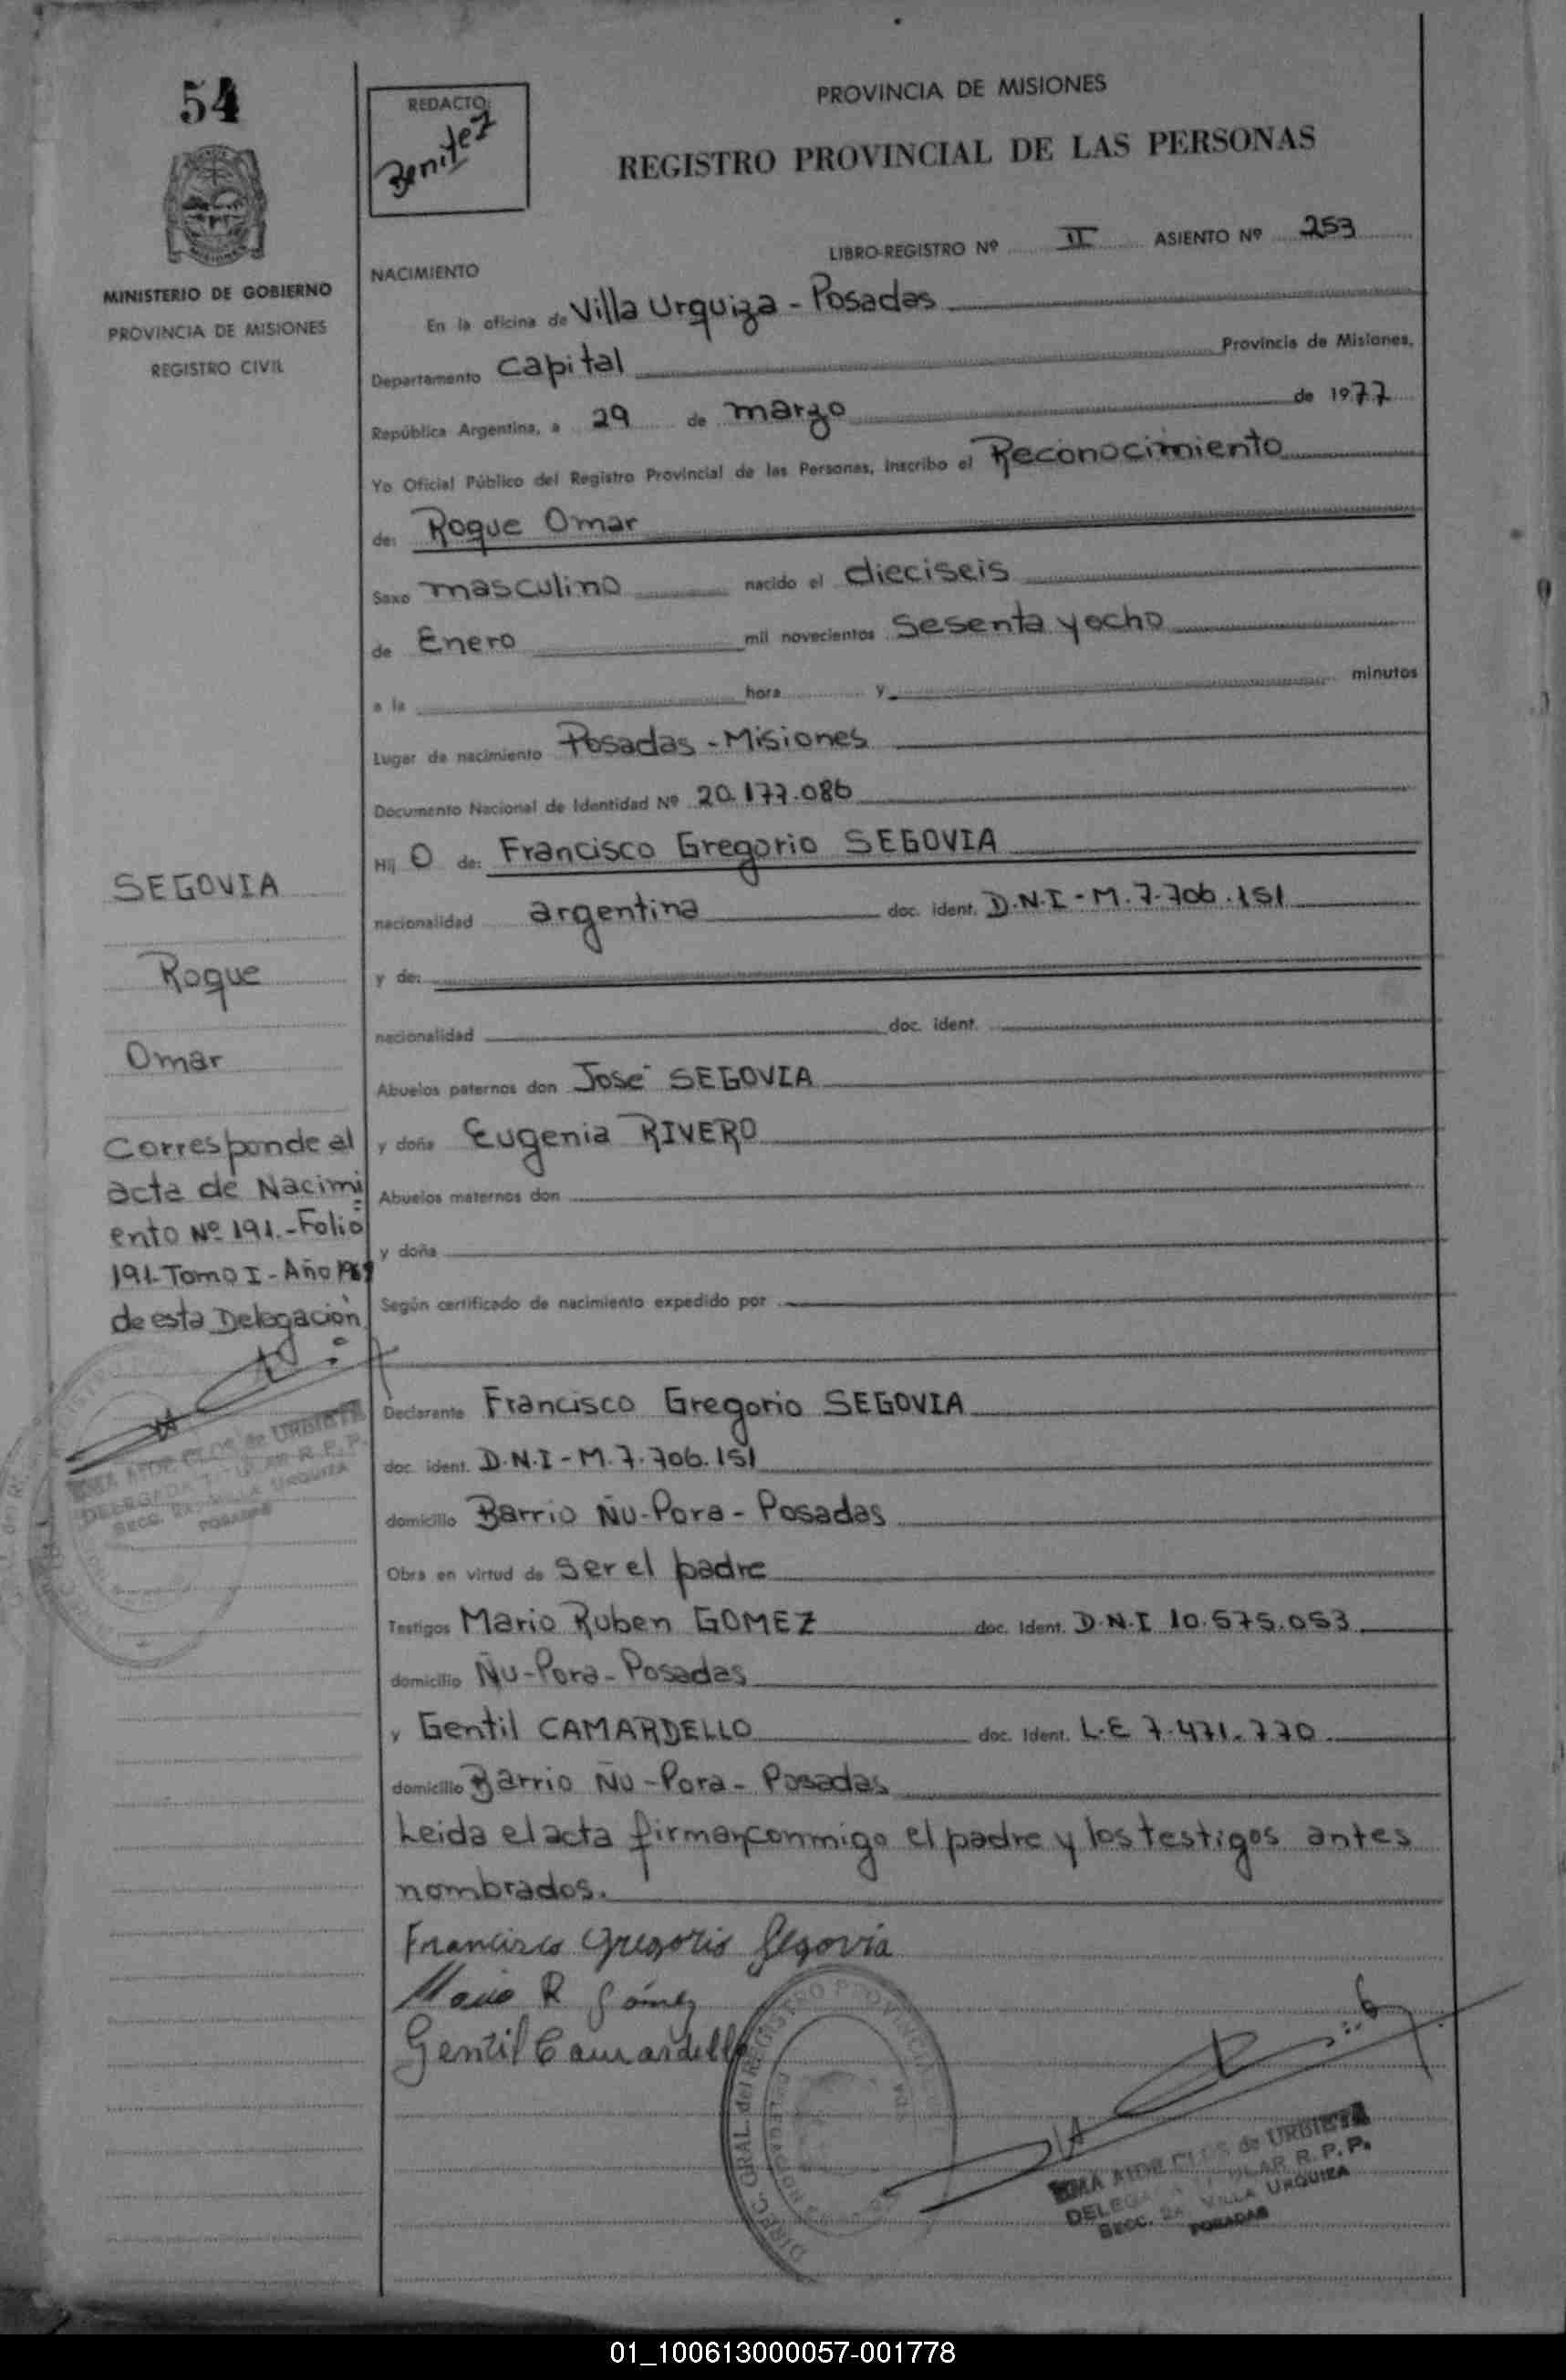 54
REDACTO:
Benitez
PROVINCIA DE MISIONES
REGISTRO PROVINCIAL DE LAS PERSONAS
LIBRO-REGISTRO Nº II ASIENTO Nº 253
MINISTERIO DE GOBIERNO
PROVINCIA DE MISIONES
REGISTRO CIVIL
NACIMIENTO
En la oficina de Villa Urquiza - Posadas
Departamento Capital Provincia de Misiones,
República Argentina, a 29 de marzo de 1977
Yo Oficial Público del Registro Provincial de las Personas, inscribo el Reconocimiento
de: Roque Omar
Sexo masculino nacido el dieciseis
de Enero mil novecientos Sesenta y ocho
a la hora y minutos
Lugar de nacimiento Posadas - Misiones
Documento Nacional de Identidad Nº 20.177.086
Hij O de: Francisco Gregorio SEGOVIA
nacionalidad argentina doc. ident. D.N.I - M. 7.706.151
y de:
nacionalidad doc. ident.
Abuelos paternos don José SEGOVIA
y doña Eugenia RIVERO
Abuelos maternos don
y doña
Según certificado de nacimiento expedido por
SEGOVIA
Roque
Omar
Corresponde al
acta de Nacimi
ento Nº 191.-Folio
191-Tomo I - Año
de esta Delegación
Declarante Francisco Gregorio SEGOVIA
doc. ident. D.N.I - M. 7.706.151
domicilio Barrio Ñu-Pora - Posadas
Obra en virtud de Ser el padre
Testigos Mario Ruben GOMEZ doc. Ident. D.N.I 10.575.053
domicilio Ñu-Pora - Posadas
y Gentil CAMARDELLO doc. Ident. L.E 7.471.770
domicilio Barrio Ñu-Pora - Posadas
Leida el acta firman conmigo el padre y los testigos antes
nombrados.
Francisco Gregorio Segovia
Mario R Gómez
Gentil Camardello
DIREC. GRAL. del REGISTRO PROVINCIAL
AIDE CLOS de URBIETA
DELEGADA TITULAR R. P. P.
SECC. 2a. VILLA URQUIZA
POSADAS
AIDE CLOS de URBIETA
DELEGADA TITULAR R. P. P.
SECC. 2a. VILLA URQUIZA
POSADAS
01_100613000057-001778